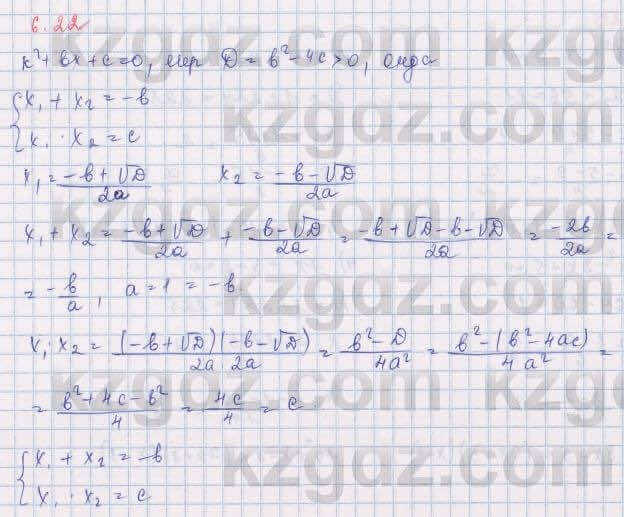 6.22
x²+bx+c=0, егер D=b²-4c>0, онда
{x₁+x₂=-b
{x₁·x₂=c
x₁=(-b+√D)/2a x₂=(-b-√D)/2a
x₁+x₂=(-b+√D)/2a+(-b-√D)/2a=(-b+√D-b-√D)/2a=-2b/2a=
=-b/a, a=1 =-b.
x₁·x₂=(-b+√D)(-b-√D)/2a 2a=(b²-D)/4a²=(b²-(b²-4ac))/4a²=
=(b²+4c-b²)/4=4c/4=c.
{x₁+x₂=-b
{x₁·x₂=c
kzgdz.com
kzgdz.com
kzgdz.com
kzgdz.com
kzgdz.com
kzgdz.com